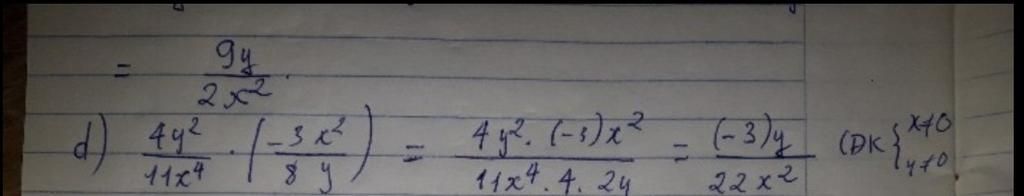 = 9y / 2x²
d) 4y² / 11x⁴ · (-3x² / 8y) = 4y² · (-3)x² / 11x⁴ · 4 · 2y = (-3)y / 22x² (ĐK { x≠0 y≠0